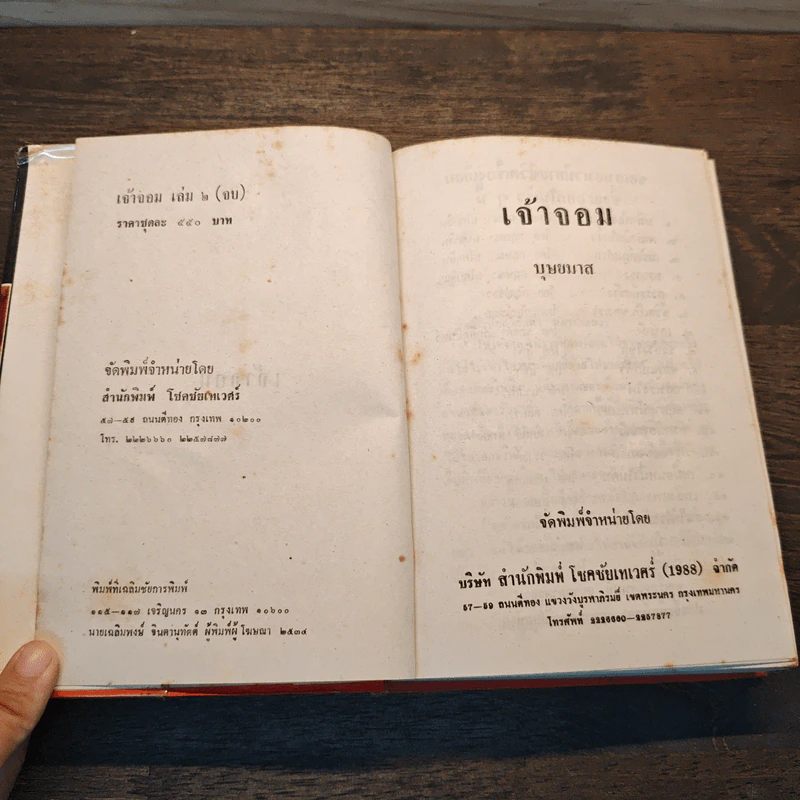 เจ้าจอม เล่ม ๒ (จบ)
ราคาชุดละ ๔๔๐ บาท
จัดพิมพ์จำหน่ายโดย
สำนักพิมพ์ โชคชัยเทเวศร์
๕๗—๕๙ ถนนตีทอง กรุงเทพ ๑๐๒๐๐
โทร. ๒๒๒๖๖๖๐ ๒๒๕๗๘๗๗
พิมพ์ที่เฉลิมชัยการพิมพ์
๑๑๕—๑๑๗ เจริญนคร ๑๓ กรุงเทพ ๑๐๖๐๐
นายเฉลิมพงษ์ จินตานุทัตต์ ผู้พิมพ์ผู้โฆษณา ๒๕๓๔
เจ้าจอม
บุษยมาส
จัดพิมพ์จำหน่ายโดย
บริษัท สำนักพิมพ์ โชคชัยเทเวศร์ (1988) จำกัด
57—59 ถนนตีทอง แขวงวังบูรพาภิรมย์ เขตพระนคร กรุงเทพมหานคร
โทรศัพท์ 2226660—2257877